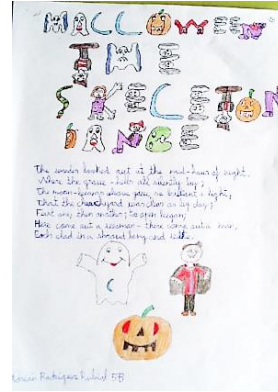 HALLOWEEN
THE
SKELETON
DANCE
The warder looked out at the mid-hour of night,
Where the grave-hills all silently lay;
The moon-beams above gave so brilliant a light,
That the churchyard was clear as by day;
First one, then another, to open began;
Here came out a woman - there came out a man,
Each clad in a shroud long and white.
Rodríguez 5B